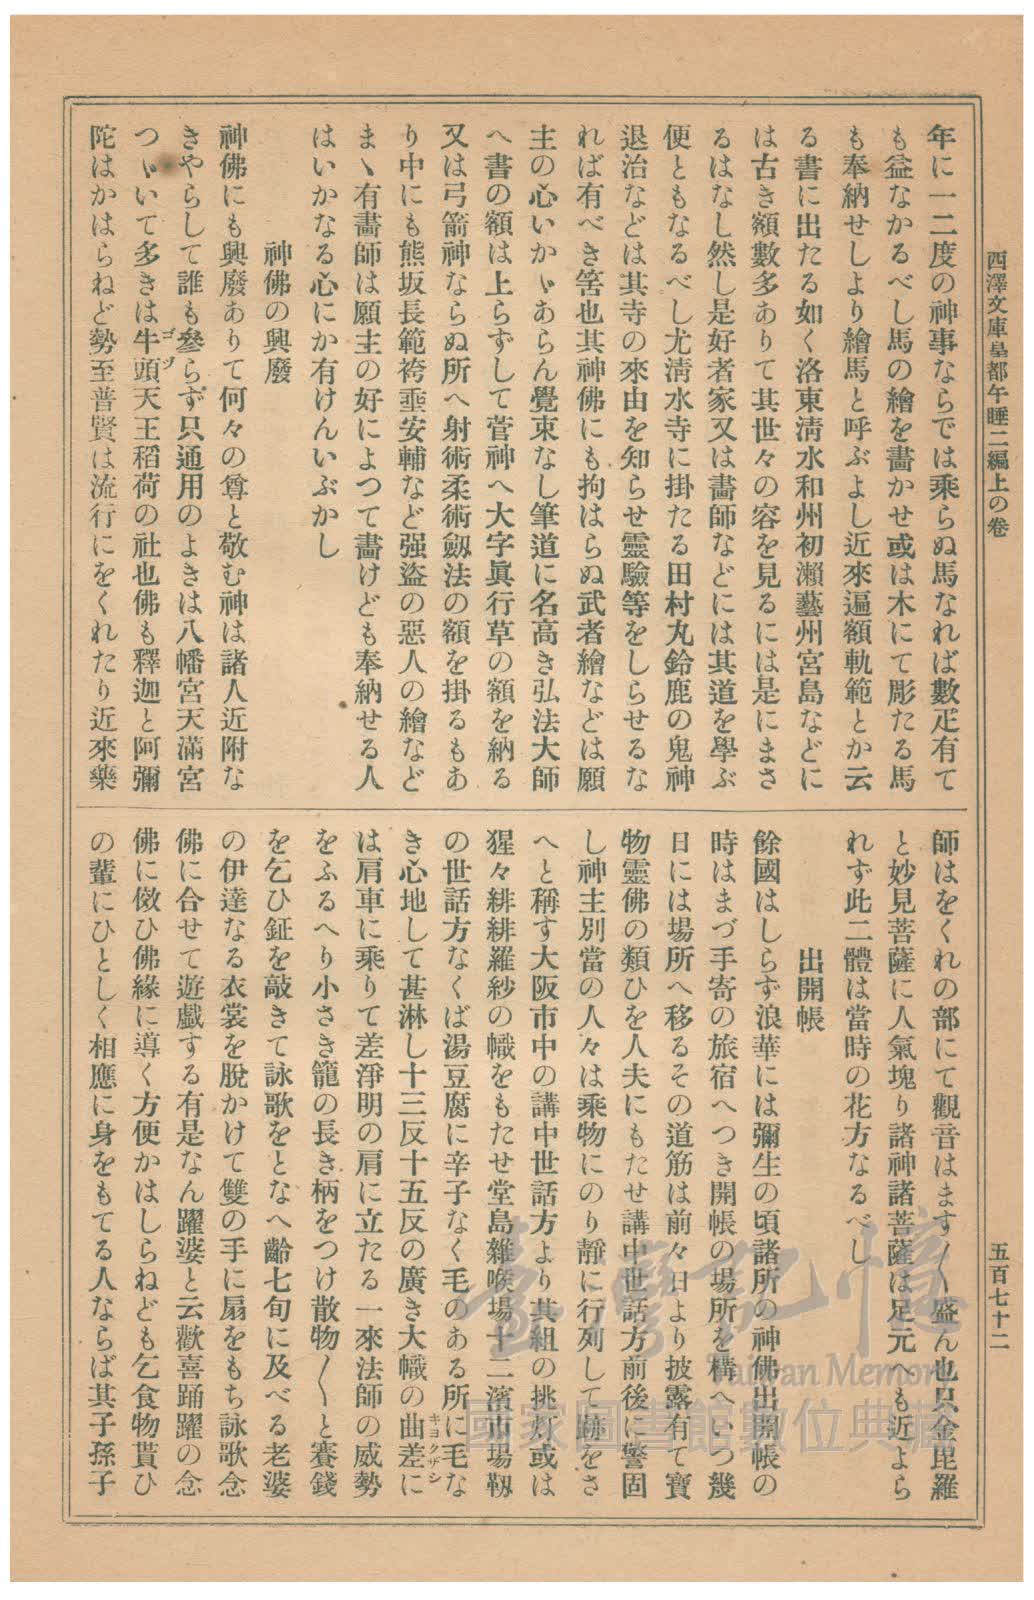 西澤文庫皇都午睡二編上の卷
五百七十二
年に一二度の神事ならでは乘らぬ馬なれば數疋有て
も益なかるべし馬の繪を畵かせ或は木にて彫たる馬
も奉納せしより繪馬と呼ぶよし近來遍額軌範とか云
る書に出たる如く洛東淸水和州初瀨藝州宮島などに
は古き額數多ありて其世々の容を見るには是にまさ
るはなし然し是好者家又は畵師などには其道を學ぶ
便ともなるべし尤淸水寺に掛たる田村丸鈴鹿の鬼神
退治などは其寺の來由を知らせ靈驗等をしらせるな
れば有べき筈也其神佛にも拘はらぬ武者繪などは願
主の心いかゞあらん覺束なし筆道に名高き弘法大師
へ書の額は上らずして菅神へ大字眞行草の額を納る
又は弓箭神ならぬ所へ射術柔術劔法の額を掛るもあ
り中にも熊坂長範袴埀安輔など强盜の惡人の繪など
まゝ有畵師は願主の好によつて畵けども奉納せる人
はいかなる心にか有けんいぶかし
神佛の興廢
神佛にも興廢ありて何々の尊と敬む神は諸人近附な
きやらして誰も參らず只通用のよきは八幡宮天滿宮
つゞいて多きは牛頭天王稻荷の社也佛も釋迦と阿彌
ゴヅ
陀はかはらねど勢至普賢は流行にをくれたり近來藥
師はをくれの部にて觀音はます〳〵盛ん也只金毘羅
と妙見菩薩に人氣塊り諸神諸菩薩は足元へも近よら
れず此二體は當時の花方なるべし
出開帳
餘國はしらず浪華には彌生の頃諸所の神佛出開帳の
時はまづ手寄の旅宿へつき開帳の場所を構へいつ幾
日には場所へ移るその道筋は前々日より披露有て寶
物靈佛の類ひを人夫にもたせ講中世話方前後に警固
し神主別當の人々は乘物にのり靜に行列して跡をさ
へと稱す大阪市中の講中世話方より其組の挑灯或は
猩々緋緋羅紗の幟をもたせ堂島雜喉場十二濱市場靱
の世話方なくば湯豆腐に辛子なく毛のある所に毛な
き心地して甚淋し十三反十五反の廣き大幟の曲差に
キヨクザシ
は肩車に乘りて差淨明の肩に立たる一來法師の威勢
をふるへり小さき籠の長き柄をつけ散物〳〵と賽錢
を乞ひ鉦を敲きて詠歌をとなへ齡七旬に及べる老婆
の伊達なる衣裳を脫かけて雙の手に扇をもち詠歌念
佛に合せて遊戲する有是なん躍婆と云歡喜踊躍の念
佛に傚ひ佛緣に導く方便かはしらねども乞食物貰ひ
の輩にひとしく相應に身をもてる人ならば其子孫子
臺灣記憶
Taiwan Memory
國家圖書館數位典藏